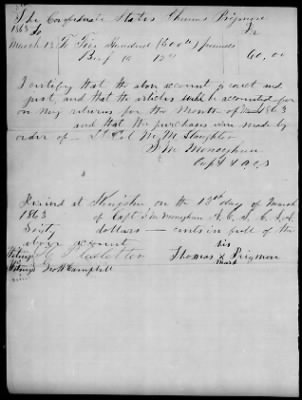 The Confederate States Thomas Prigmore
1863 To Dr
March 13 To Five Hundred (500 lbs) pounds
Beef @ 12 cts 60.00
I certify that the above account is correct and
just, and that the articles will be accounted for
on my returns for the Month of March 1863
and that the purchases were made by
order of Lt Col W. M. Slaughter
S. M. Monaghan
Capt & A.C.S.
Received at on the 13th day of March
1863 of Capt S. M. Monaghan A. C. S. C. S. A
Sixty dollars — cents in full of the
above account
his
Witness Thomas X Prigmore
mark
Witness Geo W Campbell